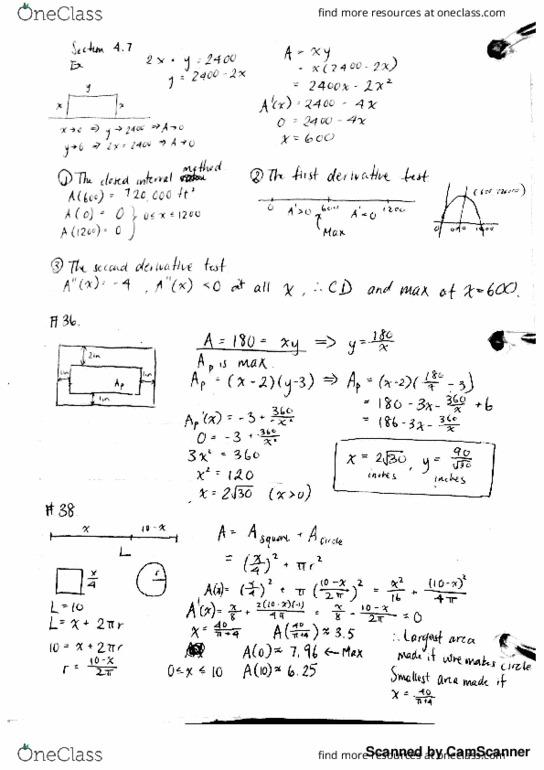 OneClass
find more resources at oneclass.com
Section 4.7
Ex
2x + y = 2400
y = 2400 - 2x
A = xy
= x(2400 - 2x)
= 2400x - 2x²
A'(x) = 2400 - 4x
0 = 2400 - 4x
x = 600
y
x x
x→0 ⇒ y→2400 ⇒ A→0
y→0 ⇒ 2x = 2400 ⇒ A→0
① The closed interval method
A(600) = 720,000 ft²
A(0) = 0
A(1200) = 0 } 0 ≤ x ≤ 1200
② The first derivative test
0 A'>0 600 A'<0 1200
Max
③ The second derivative test
A''(x) = -4, A''(x) < 0 at all x, ∴ CD and max at x = 600.
#36.
2in
1in Ap 1in
1in
A = 180 = xy ⇒ y = 180/x
Ap is max
Ap = (x-2)(y-3) ⇒ Ap = (x-2)(180/x - 3)
= 180 - 3x - 360/x + 6
= 186 - 3x - 360/x
Ap'(x) = -3 + 360/x²
0 = -3 + 360/x²
3x² = 360
x² = 120
x = 2√30 (x>0)
x = 2√30 inches, y = 90/√30 inches
#38
x 10-x
L
x/4 r
L = 10
L = x + 2πr
10 = x + 2πr
r = (10-x)/2π
A = A square + A circle
= (x/4)² + πr²
A(x) = (x/4)² + π((10-x)/2π)² = x²/16 + (10-x)²/4π
A'(x) = x/8 + 2(10-x)(-1)/4π = x/8 - (10-x)/2π = 0
x = 40/(π+4) A(40/(π+4)) ≈ 3.5
A(0) ≈ 7.96 ← Max
0 ≤ x ≤ 10 A(10) ≈ 6.25
∴ Largest area
made if wire makes circle
Smallest area made if
x = 40/(π+4)
OneClass
find more resources at oneclass.com
Scanned by CamScanner